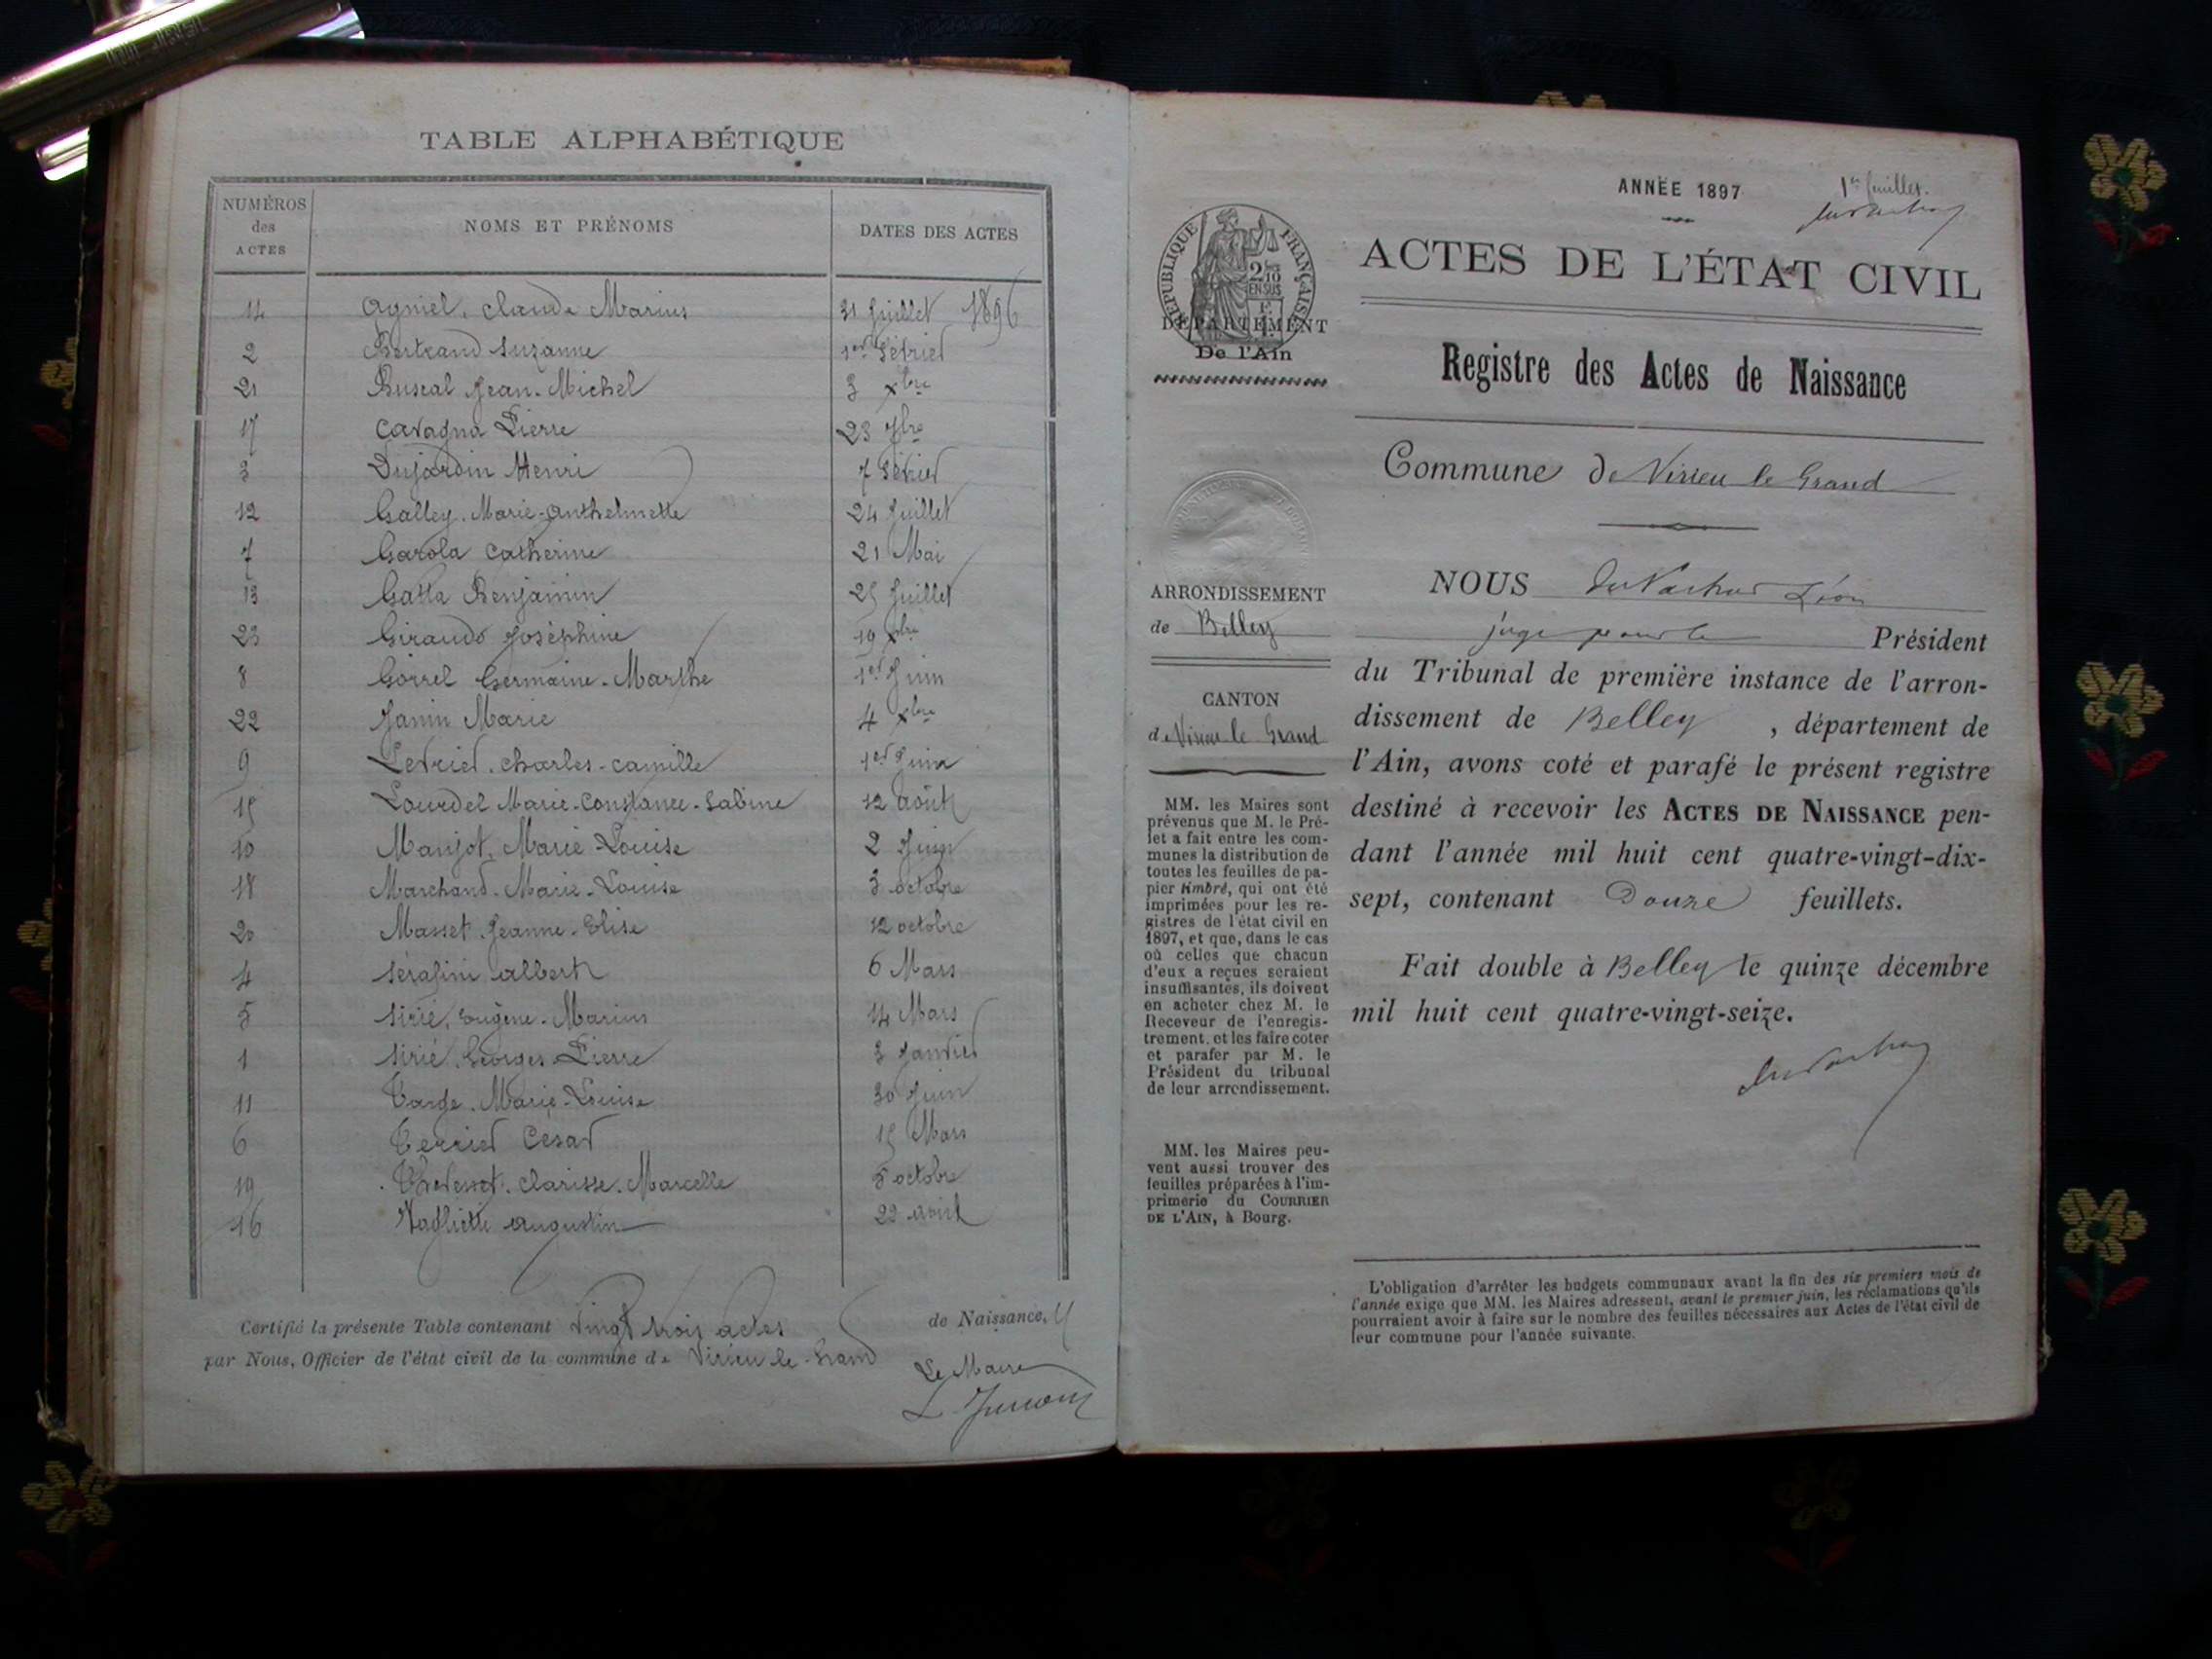 TABLE ALPHABÉTIQUE
NUMÉROS des ACTES NOMS ET PRÉNOMS DATES DES ACTES
14 Agniel, Claude Marius 31 Juillet 1896
2 Bertrand Suzanne 1er Février
21 Buscal Jean-Michel 3 xbre
17 Cavagna Pierre 23 7bre
3 Dujardin Henri 7 Février
12 Galley, Marie-Anthelmette 24 Juillet
7 Garola Catherine 21 Mai
13 Gatta Benjamin 25 Juillet
23 Giraudo Joséphine 19 xbre
8 Gorrel Germaine-Marthe 1er Juin
22 Janin Marie 4 xbre
9 Levrier, Charles-Camille 1er Juin
15 Lourdel Marie-Constance-Sabine 12 Août
10 Manjot, Marie Louise 2 Juin
18 Marchand-Marie-Louise 3 octobre
20 Masset Jeanne-Elise 12 octobre
4 Sérafini Albert 6 Mars
5 Sirié, Eugène-Marius 14 Mars
1 Sirié, Georges-Pierre 3 Janvier
11 Targe, Marie-Louise 30 Juin
6 Terrier César 15 Mars
19 Clarisse-Marcelle 5 octobre
16 Augustin 22 août
Certifié la présente Table contenant Vingt trois actes de Naissance,
par Nous, Officier de l'état civil de la commune de Virieu-le-Grand
Le Maire
ANNÉE 1897
1er feuillet.
RÉPUBLIQUE FRANÇAISE
2/10 EN SUS
DÉPARTEMENT
De l'Ain
ACTES DE L'ÉTAT CIVIL
Registre des Actes de Naissance
Commune de Virieu le Grand
ARRONDISSEMENT
de Belley
CANTON
de Virieu le Grand
MM. les Maires sont
prévenus que M. le Pré-
fet a fait entre les com-
munes la distribution de
toutes les feuilles de pa-
pier timbré, qui ont été
imprimées pour les re-
gistres de l'état civil en
1897, et que, dans le cas
où celles que chacun
d'eux a reçues seraient
insuffisantes, ils doivent
en acheter chez M. le
Receveur de l'enregis-
trement, et les faire coter
et parafer par M. le
Président du tribunal
de leur arrondissement.
MM. les Maires peu-
vent aussi trouver des
feuilles préparées à l'im-
primerie du COURRIER
DE L'AIN, à Bourg.
NOUS Léon
juge pour le Président
du Tribunal de première instance de l'arron-
dissement de Belley, département de
l'Ain, avons coté et parafé le présent registre
destiné à recevoir les ACTES DE NAISSANCE pen-
dant l'année mil huit cent quatre-vingt-dix-
sept, contenant Douze feuillets.
Fait double à Belley le quinze décembre
mil huit cent quatre-vingt-seize.
L'obligation d'arrêter les budgets communaux avant la fin des six premiers mois de
l'année exige que MM. les Maires adressent, avant le premier juin, les réclamations qu'ils
pourraient avoir à faire sur le nombre des feuilles nécessaires aux Actes de l'état civil de
leur commune pour l'année suivante.